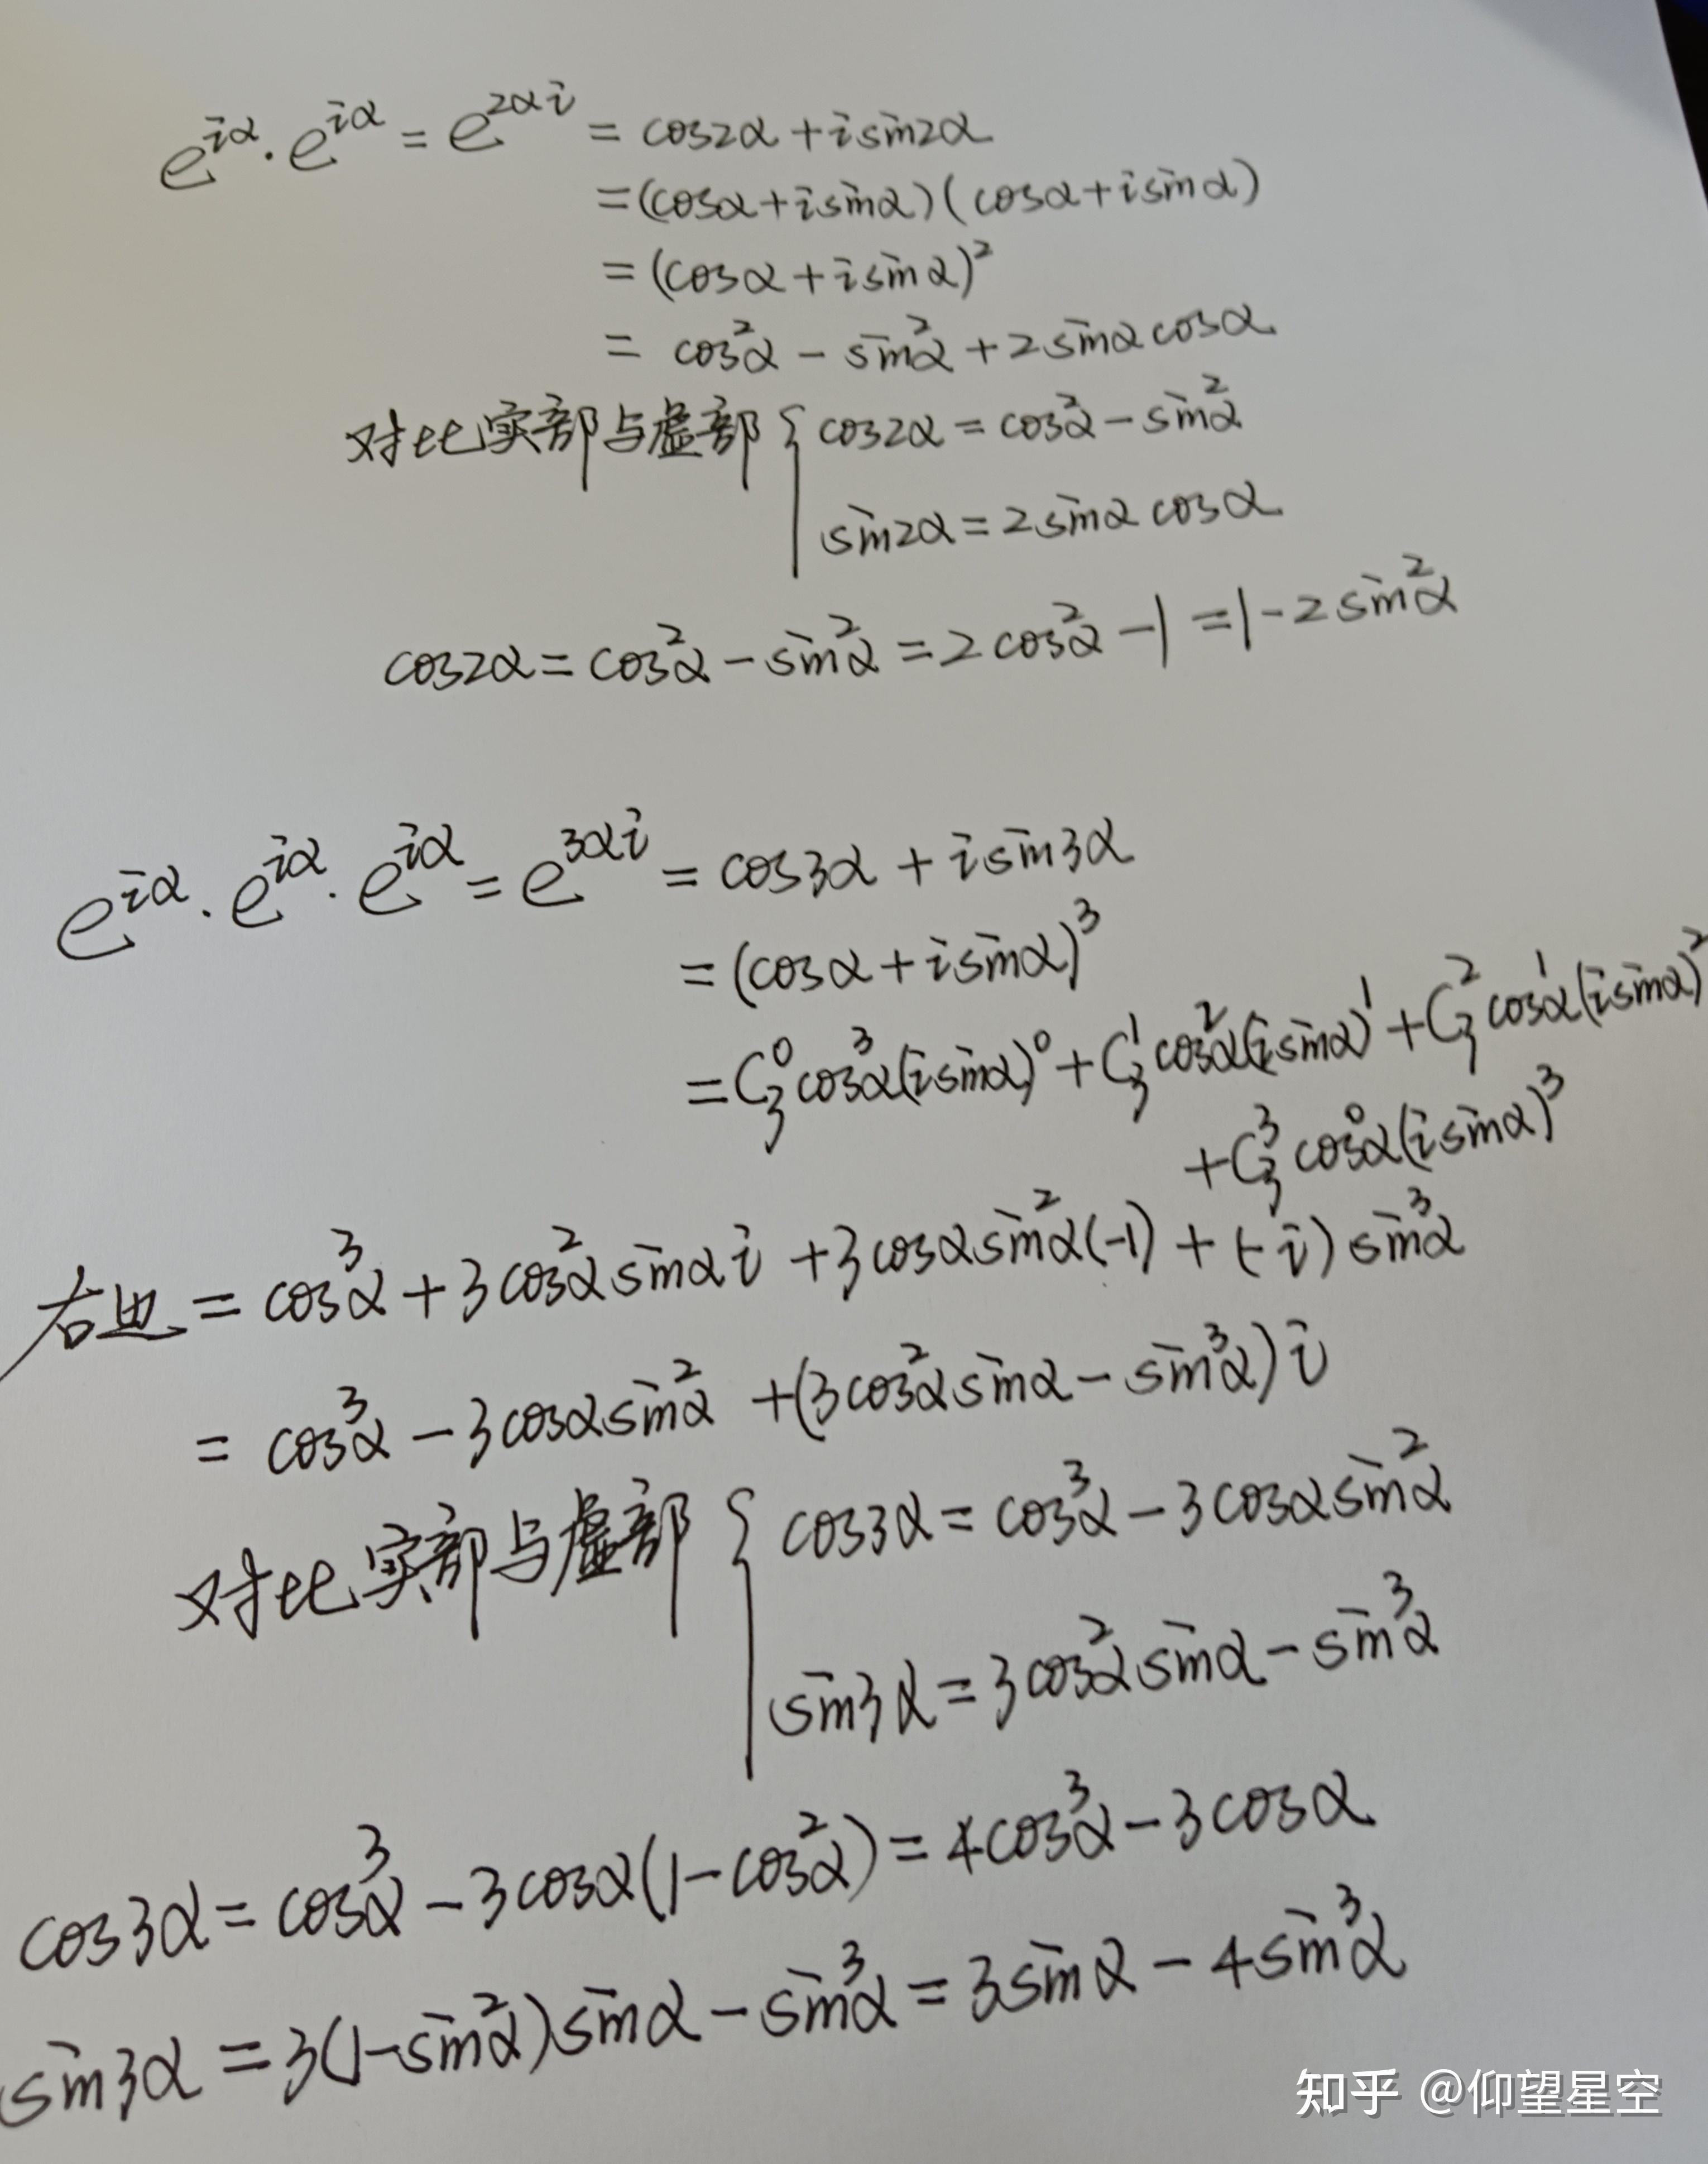 e^{iα}·e^{iα} = e^{2αi} = cos2α + isin2α
= (cosα+isinα)(cosα+isinα)
= (cosα+isinα)²
= cos²α - sin²α + 2sinαcosα
对比实部与虚部 { cos2α = cos²α - sin²α
sin2α = 2sinαcosα
cos2α = cos²α - sin²α = 2cos²α - 1 = 1 - 2sin²α
e^{iα}·e^{iα}·e^{iα} = e^{3αi} = cos3α + isin3α
= (cosα+isinα)³
= C₃⁰cos³α(isinα)⁰ + C₃¹cos²α(isinα)¹ + C₃²cos¹α(isinα)²
+ C₃³cos⁰α(isinα)³
右边 = cos³α + 3cos²αsinαi + 3cosαsin²α(-1) + (-i)sin³α
= cos³α - 3cosαsin²α + (3cos²αsinα - sin³α)i
对比实部与虚部 { cos3α = cos³α - 3cosαsin²α
sin3α = 3cos²αsinα - sin³α
cos3α = cos³α - 3cosα(1-cos²α) = 4cos³α - 3cosα
sin3α = 3(1-sin²α)sinα - sin³α = 3sinα - 4sin³α
知乎 @仰望星空